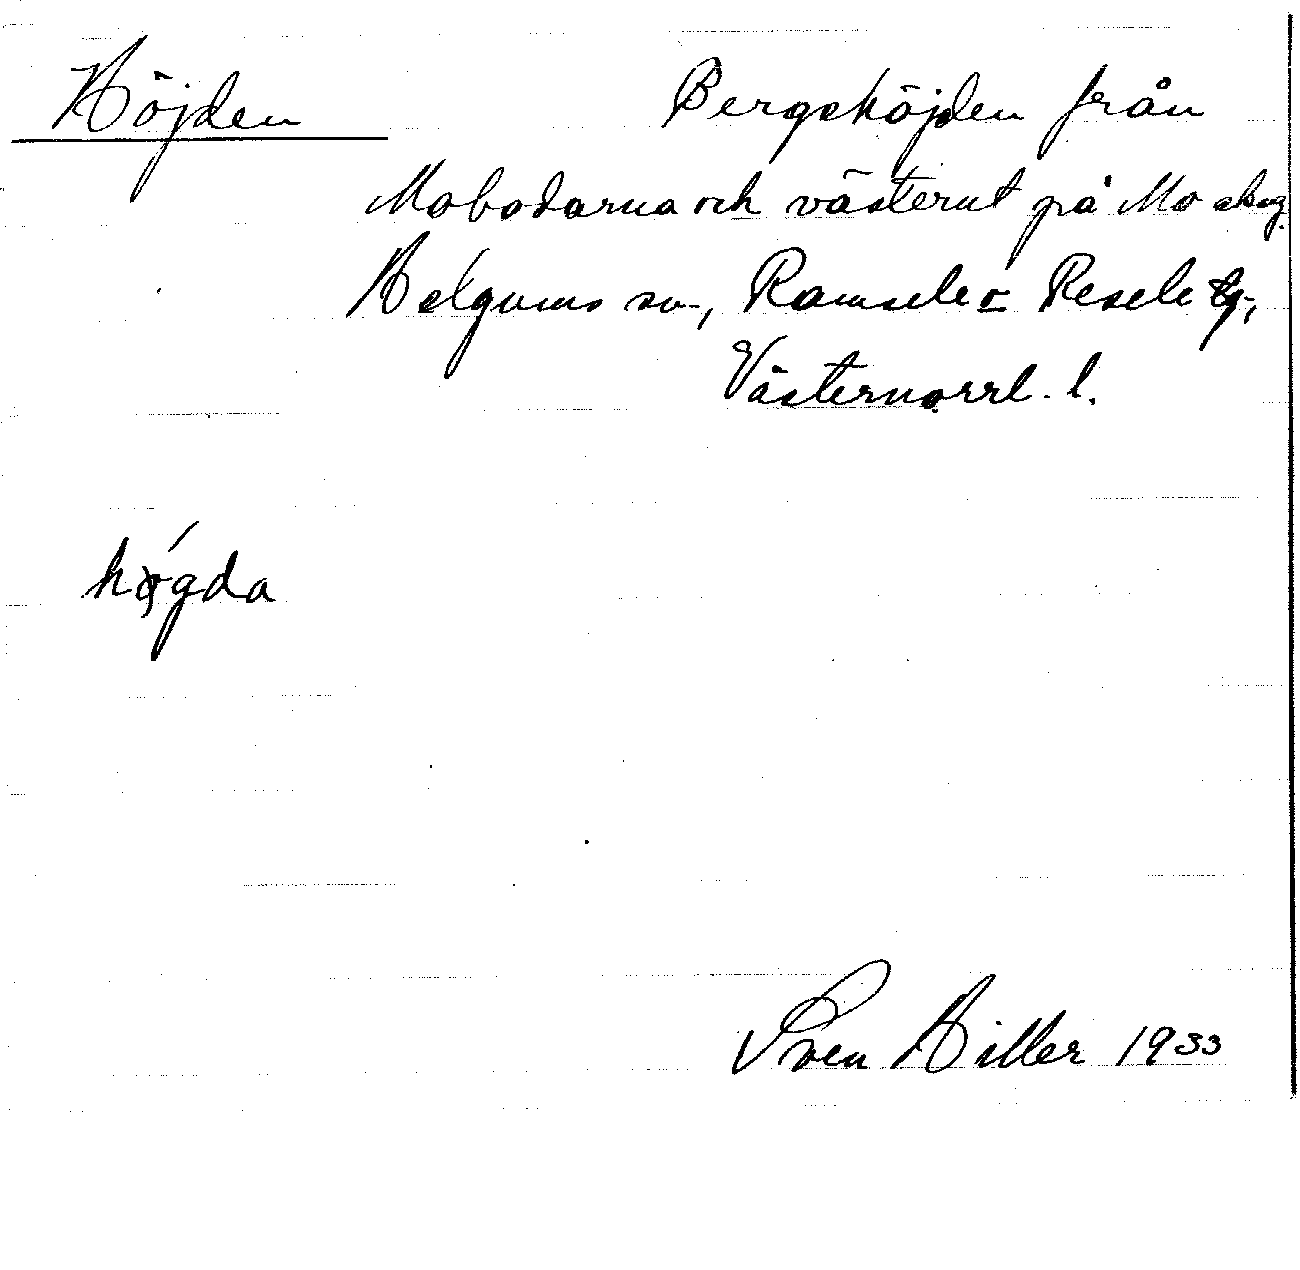 Höjden Bergshöjden från
Mobodarna och västerut på Mo skog
Helgums sn, Ramsele o Resele tg,
Västernorrl. l.
hǫ́gda
Sven Hiller 1933